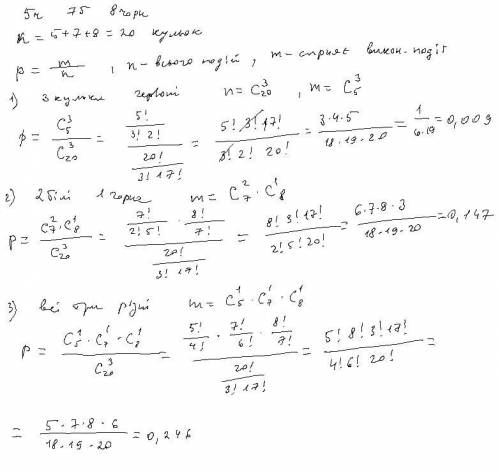 5ч 7б 8чорн
n = 5+7+8 = 20 кульок
p = m/n , n - всього подій , m - сприят викон. події
1) 3 кульки червоні n = C_20^3 , m = C_5^3
p = C_5^3 / C_20^3 = (5!/(3! 2!)) / (20!/(3! 17!)) = (5! 3! 17!)/(3! 2! 20!) = (3·4·5)/(18·19·20) = 1/(6·19) = 0,009
2) 2 білі 1 чорна m = C_7^2 · C_8^1
p = (C_7^2 · C_8^1)/C_20^3 = (7!/(2! 5!) · 8!/7!) / (20!/(3! 17!)) = (8! 3! 17!)/(2! 5! 20!) = (6·7·8·3)/(18·19·20) = 0,147
3) всі три різні m = C_5^1 · C_7^1 · C_8^1
p = (C_5^1 · C_7^1 · C_8^1)/C_20^3 = (5!/4! · 7!/6! · 8!/7!) / (20!/(3! 17!)) = (5! 8! 3! 17!)/(4! 6! 20!) =
= (5·7·8·6)/(18·19·20) = 0,246